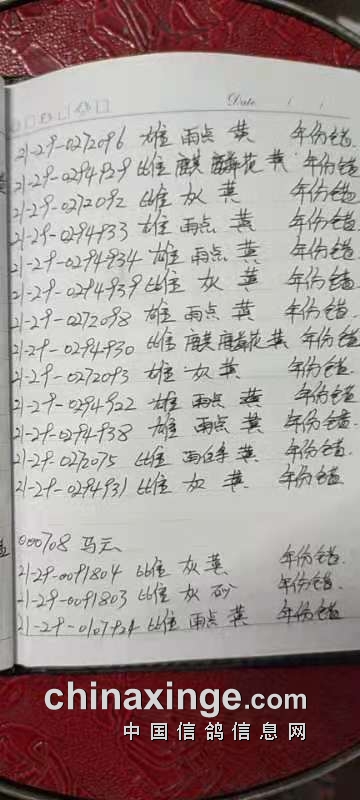 Date / /
21-29-0272096 雄 雨点 黄 年份错
21-29-0294929 雌 麒麟花 黄 年份错
21-29-0272092 雌 灰 黄 年份错
21-29-0294933 雄 雨点 黄 年份错
21-29-0294934 雄 雨点 黄 年份错
21-29-0294939 雌 灰 黄 年份错
21-29-0272098 雄 雨点 黄 年份错
21-29-0294930 雌 麒麟花 黄 年份错
21-29-0272093 雄 灰 黄 年份错
21-29-0294922 雄 雨点 黄 年份错
21-29-0294938 雄 雨点 黄 年份错
21-29-0272075 雌 雨白条 黄 年份错
21-29-0294931 雌 灰 黄 年份错
000708 马云
21-29-0091804 雌 灰 黄 年份错
21-29-0091803 雌 灰 砂 年份错
21-29-0107924 雌 雨点 黄 年份错
chinaxinge.com
中国信鸽信息网